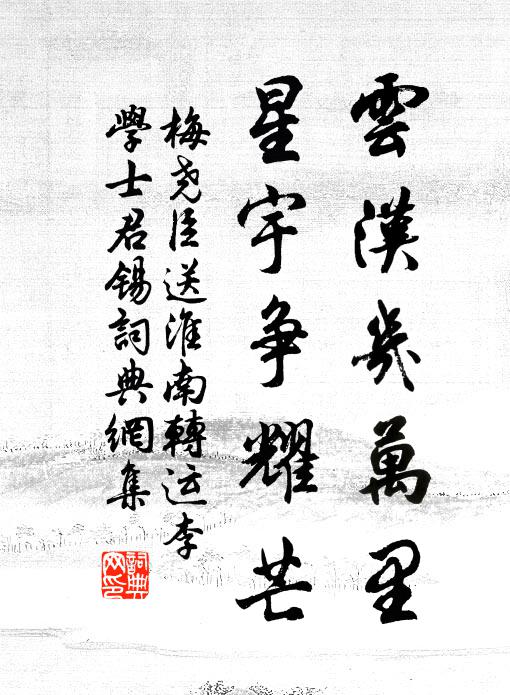 雲漢幾萬里
星宇争耀芒
梅尧臣送淮南轉运李
學士君錫詞典網集
詞典网印